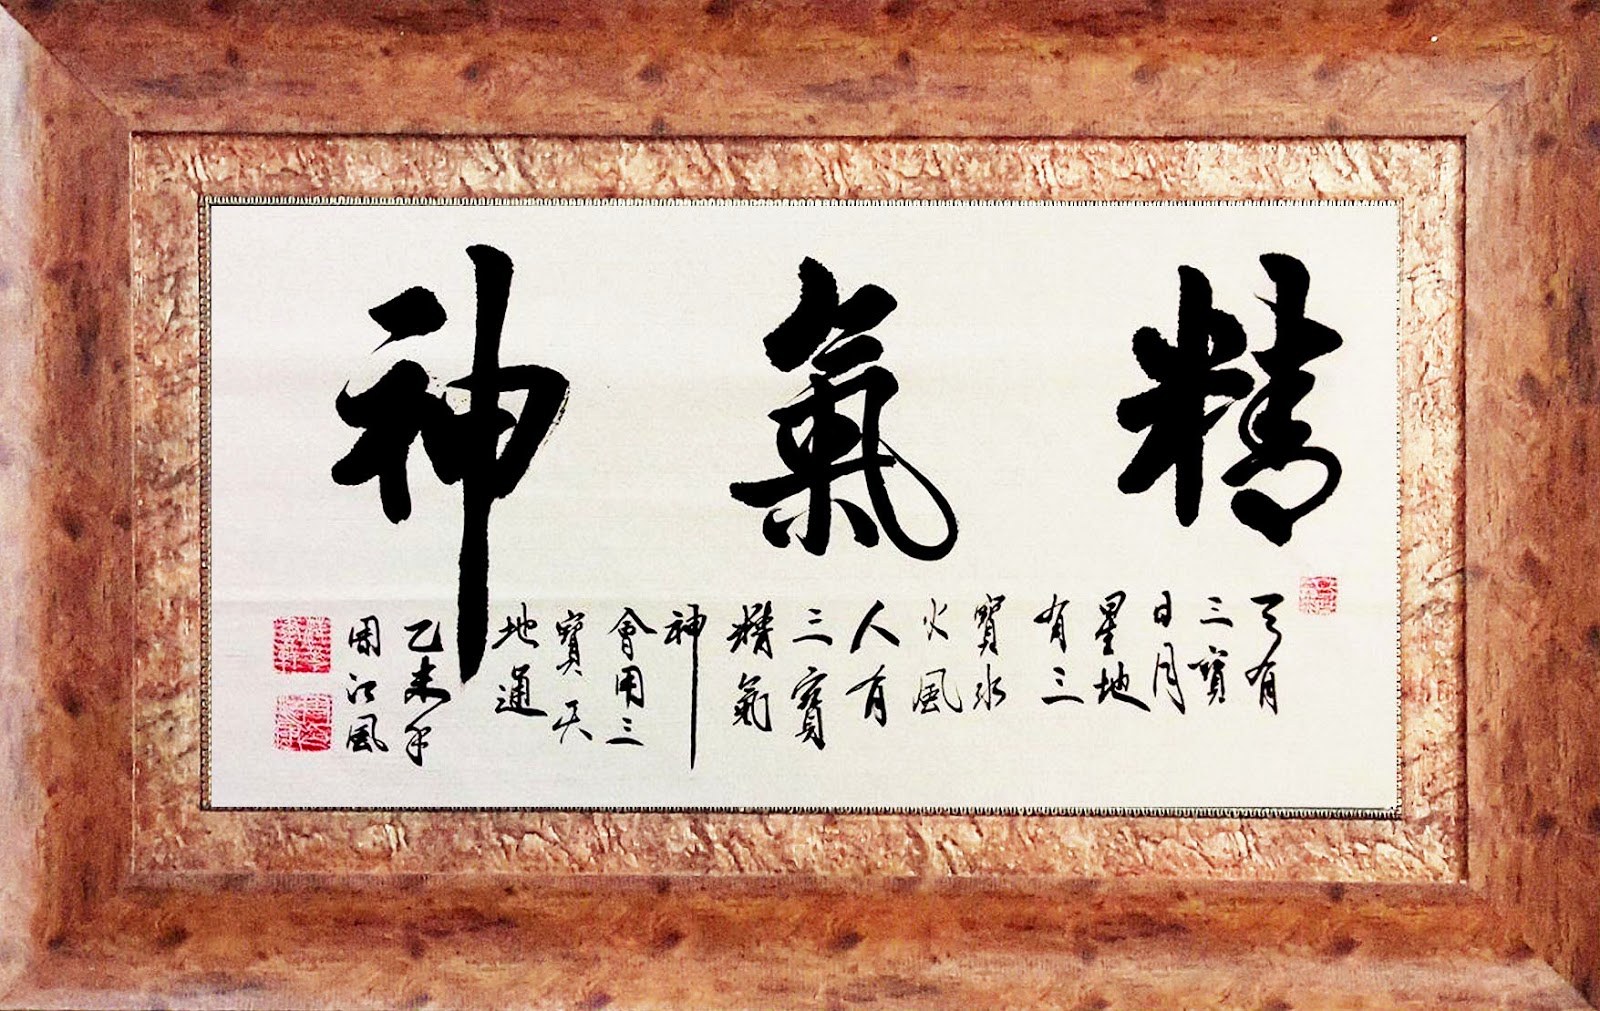 精氣神
天有
三寶
日月
星地
有三
寶水
火風
人有
三寶
精氣
神
會用三
寶天
地通
乙未年
周江風